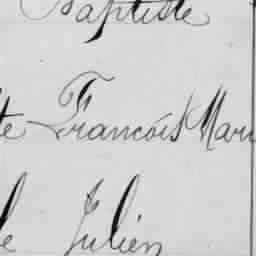 Baptiste
te François Mari
le Julien